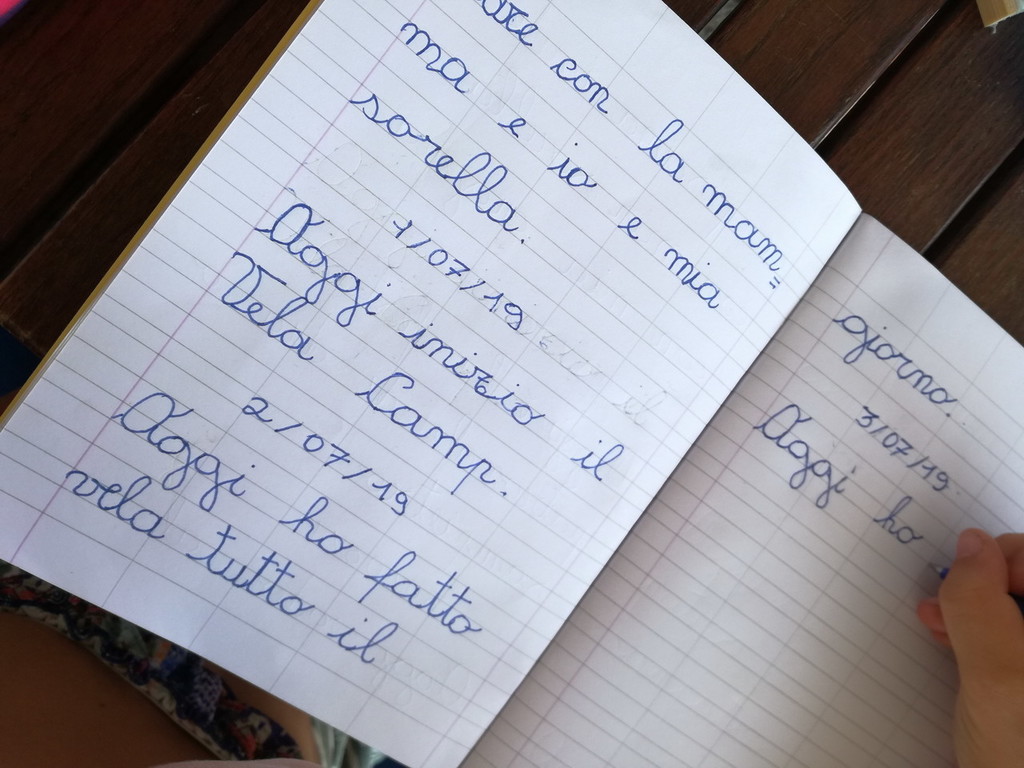 con la mam=
ma e io e mia
sorella.
1/07/19
Oggi inizio il
Vela Camp.
2/07/19
Oggi ho fatto
vela tutto il
giorno.
3/07/19
Oggi ho